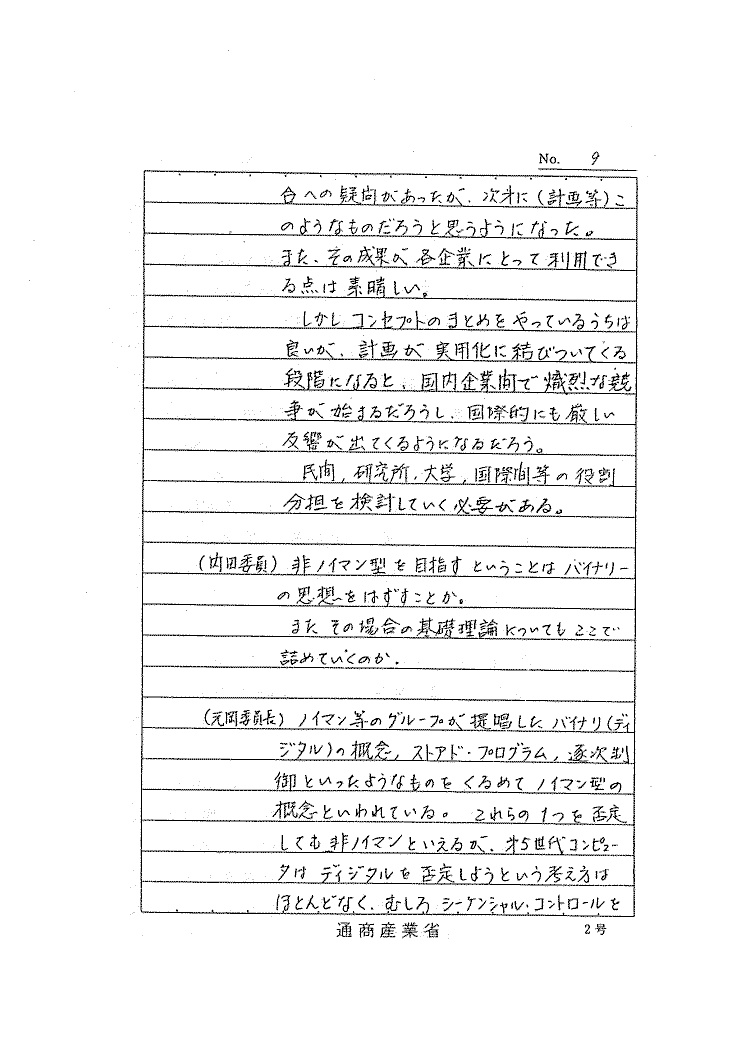 No. 9
合への疑問があったが、次才に(計画等)こ
のようなものだろうと思うようになった。
また、その成果が各企業にとって利用でき
る点は素晴しい。
しかしコンセプトのまとめをやっているうちは
良いが、計画が実用化に結びついてくる
段階になると、国内企業間で熾烈な競
争が始まるだろうし、国際的にも厳しい
反響が出てくるようになるだろう。
民間,研究所,大学,国際間等の役割
分担を検討していく必要がある。
(内田委員) 非ノイマン型を目指すということはバイナリー
の思想をはずすことか。
またその場合の基礎理論についてもここで
詰めていくのか.
(元岡委員長) ノイマン等のグループが提唱したバイナリ(ディ
ジタル)の概念,ストアド・プログラム,逐次制
御といったようなものをくるめてノイマン型の
概念といわれている。これらの1つを否定
しても非ノイマンといえるが、才5世代コンピュー
タはディジタルを否定しようという考え方は
ほとんどなく、むしろシーケンシャル・コントロールを
通商産業省
2号